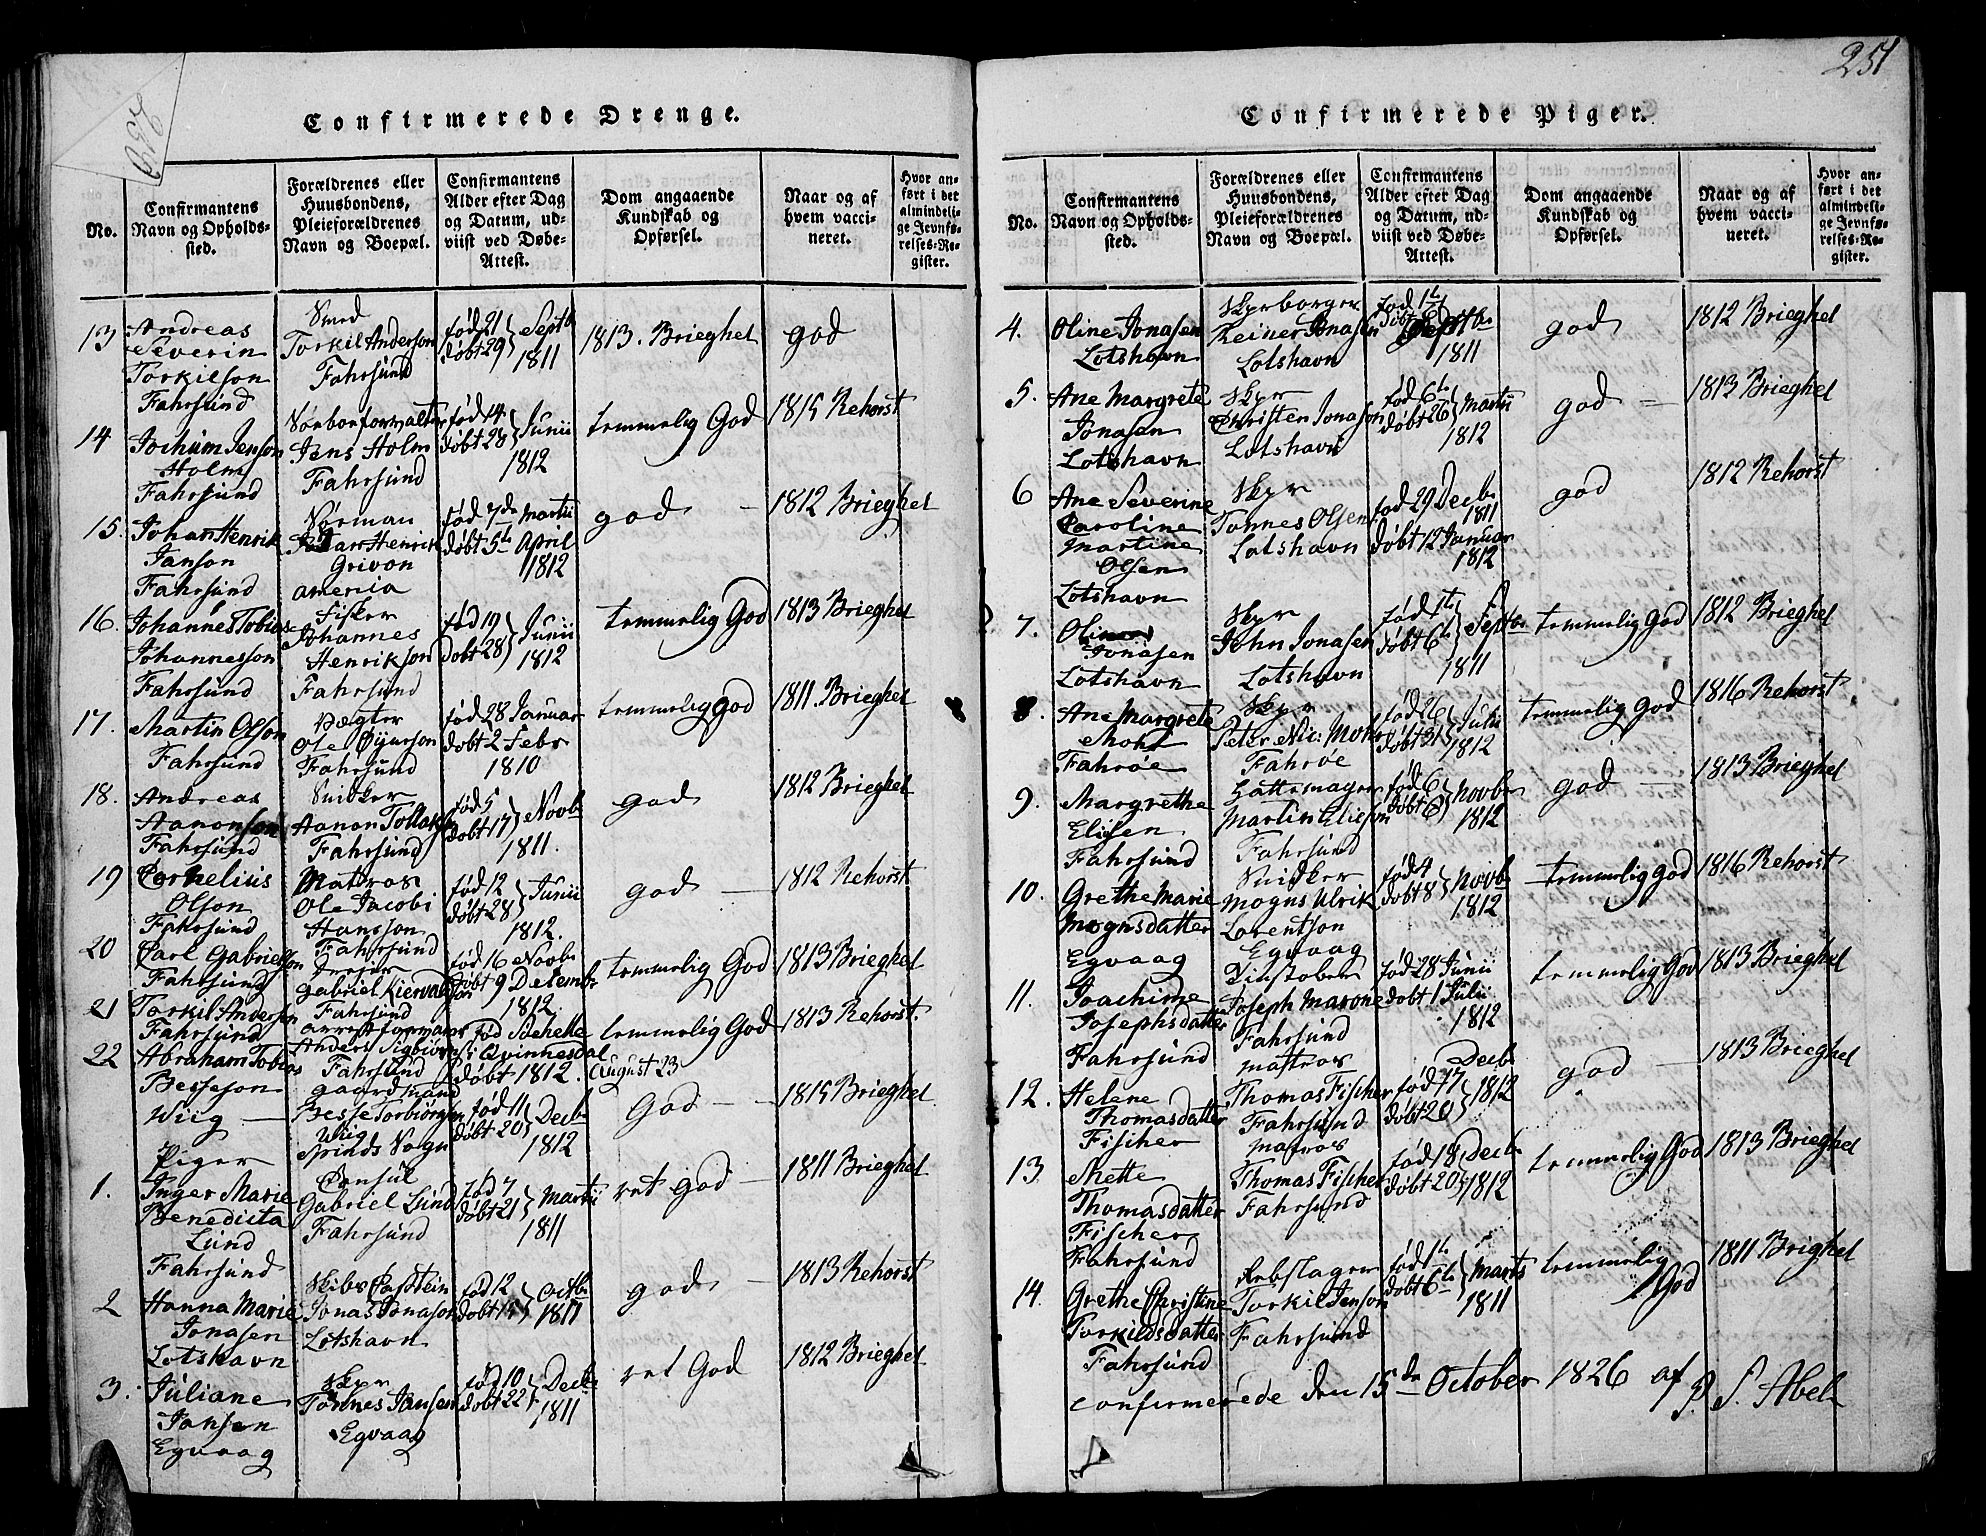 252
Confirmerede Drenge.
No.
Confirmantens
Navn og Opholds-
sted.
Forældrenes eller
Huusbondens,
Pleieforældrenes
Navn og Boepæl.
Confirmantens
Alder efter Dag
og Datum, ud-
viist ved Døbe-
Attest.
Dom angaaende
Kundskab og
Opførsel.
Naar og af
hvem vacci-
neret.
Hvor an-
ført i det
almindeli-
ge Jevnfø-
relses-Re-
gister.
13
Andreas
Severin
Torkilson
Fahrsund
Smed
Torkil Anderson
Fahrsund
fød 21
døbt 29
Septb
1811
1813. Brieghel
god
14
Jochum Jenson
Holm
Fahrsund
Jens Holm
Fahrsund
fød 14
døbt 28
Junii
1812
temmelig God
1815 Rehorst
15.
Johan Henrik
Janson
Fahrsund
Grivon
ameria
fød 7de Martii
døbt 5te April
1812
god
1812 Brieghel
16.
Johannes Tobias
Johannesson
Fahrsund
Fisker
Johannes
Henrikson
Fahrsund
fød 19
døbt 28
Junii
1812
temmelig God
1813 Brieghel
17.
Martin Olson
Fahrsund
Ole
Fahrsund
fød 28 Januar
døbt 2 Febr
1810
temmelig god
1811. Brieghel
18.
Andreas
Aanonson
Fahrsund
Snidker
Aanon Tollaksen
Fahrsund
fød 5
døbt 17
Novb
1811.
god
1812 Brieghel
19
Cornelius
Olson
Fahrsund
Matros
Ole Jacobi
Hansson
Fahrsund
fød 12
døbt 28
Junii
1812.
god
1812 Rehorst
20
Carl Gabrielson
Fahrsund
Gabriel
Fahrsund
fød 16 Novb
døbt 9 Decembr
1812.
temmelig God
1813 Brieghel
21
Torkil Andersen
Fahrsund
Anders Sigbiørns
Fahrsund
i Qvinnesdal
døbt 1812.
August 23
temmelig God
1813 Rehorst.
22
Abraham Tobias
Besseson
Wiig
gaardmand
Besse Torbiørgsen
Wiig
Spinds Sogn
fød 11
døbt 20
Decb
1812
God
1815 Brieghel
Piger
1.
Inger Marie
Benedicta
Lund
Fahrsund
Consul
Gabriel Lund
Fahrsund
fød 7
døbt 21
Martii
1811
ret god
1811 Brieghel
2
Hanna Marie
Jonasen
Lotshavn
Jonas Jonason
Lotshavn
fød 12
døbt
Octb
god
1813 Rehorst
3.
Juliane
Jansen
Egvaag
Skpr
Tønnes Jansen
Egvaag
fød 10
døbt 22
Decb
1811
ret God
1812 Brieghel
251
Confirmerede Piger.
No.
Confirmantens
Navn og Opholds-
sted.
Forældrenes eller
Huusbondens,
Pleieforældrenes
Navn og Boepæl.
Confirmantens
Alder efter Dag
og Datum, ud-
viist ved Døbe-
Attest.
Dom angaaende
Kundskab og
Opførsel.
Naar og af
hvem vacci-
neret.
Hvor an-
ført i det
almindeli-
ge Jevnfø-
relses-Re-
gister.
4.
Oline Jonasen
Lotshavn
Skpr borger
Reiner Jonasen
Lotshavn
fød 1t
døbt 8
Septb
1811
god
1812 Brieghel
5.
Ane Margrete
Jonasen
Lotshavn
Skpr
Christen Jonason
Lotshavn
fød 6t
døbt 26
Martii
1812
god
1813 Brieghel
6
Ane Severine
Caroline
Martine
Olsen
Lotshavn
Skpr
Tønnes Olsen
Lotshavn
fød 29 Decb
1811
døbt 12 Januar
1812
god
1812 Rehorst
7.
Jonasen
Lotshavn
Skpr
John Jonasen
Lotshavn
fød 1t
døbt 6t
Septb
1811
temmelig God
1812 Brieghel
8.
Ane Margrete
Mohr
Fahrøe
Skpr
Peter Nic: Mohr
Fahrøe
fød 26
døbt 31
Julii
1812
temmelig God
1816 Rehorst
9.
Margrethe
Elisen
Fahrsund
Martin Elieson
Fahrsund
fød 6
døbt
Novb
1812
god
1813 Brieghel
10.
Grethe Marie
Mognsdatter
Egvaag
Snidker
Mogns Ulrik
Lorentson
Egvaag
fød 4
døbt 8
Novb
1812
temmelig God
1816 Rehorst
11.
Joachime
Josephsdatter
Fahrsund
Joseph Marone
Fahrsund
fød 28 Junii
døbt 1 Julii
1812
temmelig God
1813 Brieghel
12.
Helene
Thomasdatter
Fischer
Matros
Thomas Fischer
Fahrsund
fød 17
døbt 20
Decb
1812
god
1813 Brieghel
13.
Mette
Thomasdatter
Fischer
Fahrsund
Matros
Thomas Fischer
Fahrsund
fød 18
døbt 20
Decb
1812
temmelig God
1813 Brieghel
14.
Grethe Christine
Torkildsdatter
Fahrsund
Rebslager
Torkil Jenson
Fahrsund
fød 1t
døbt 6t
Marts
1811
temmelig
God
1811 Brighel
confirmerede den 15de October 1826 af P. S. Abel